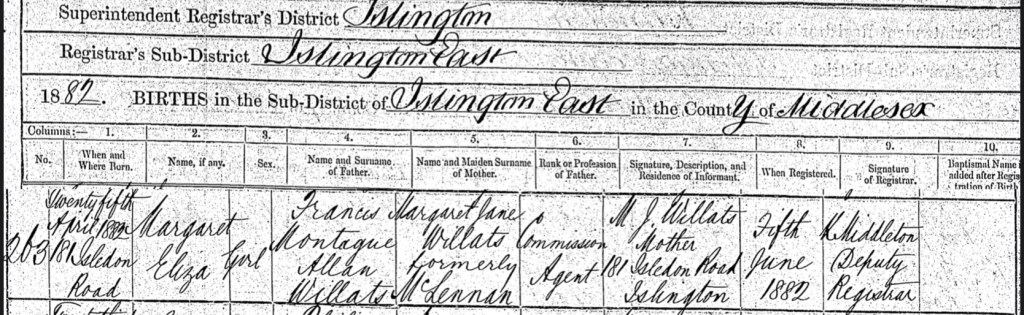 Superintendent Registrar's District Islington
Registrar's Sub-District Islington East
1882. BIRTHS in the Sub-District of Islington East in the County of Middlesex
Columns:— 1. 2. 3. 4. 5. 6. 7. 8. 9. 10.
No. When and Where Born. Name, if any. Sex. Name and Surname of Father. Name and Maiden Surname of Mother. Rank or Profession of Father. Signature, Description, and Residence of Informant. When Registered. Signature of Registrar. Baptismal Name added after Regis tration of Birth
Twenty fifth Francis Margaret Jane M. J. Willats
April 1882 Margaret Montague Willats Commission Mother Fifth K Middleton
263 181 Isledon Eliza Girl Allan formerly Agent 181 Isledon Road June Deputy
Road Willats McLennan Islington 1882 Registrar